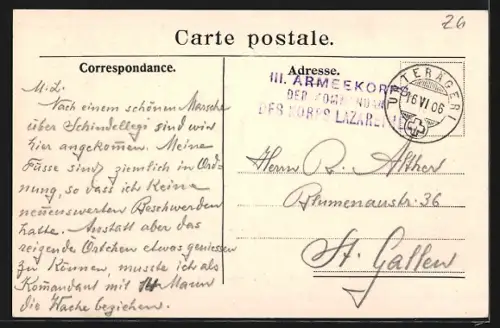 26
Carte postale.
Correspondance.
Adresse.
III. ARMEEKORPS
DER KOMMANDANT
DES KORPS LAZARETES
UNTERÄGERI
16 VI 06
M. L.
Nach einem schönen Marsche
über Schindellegi sind wir
hier angekommen. Meine
Füsse sind ziemlich in Ord-
nung, so dass ich keine
nennenswerten Beschwerden
hatte. Anstatt aber das
reizende Örtchen etwas geniessen
zu können, musste ich als
Komandant mit 14 Mann
die Wache beziehen.
Herrn R. Alther
Blumenaustr. 36
St. Gallen